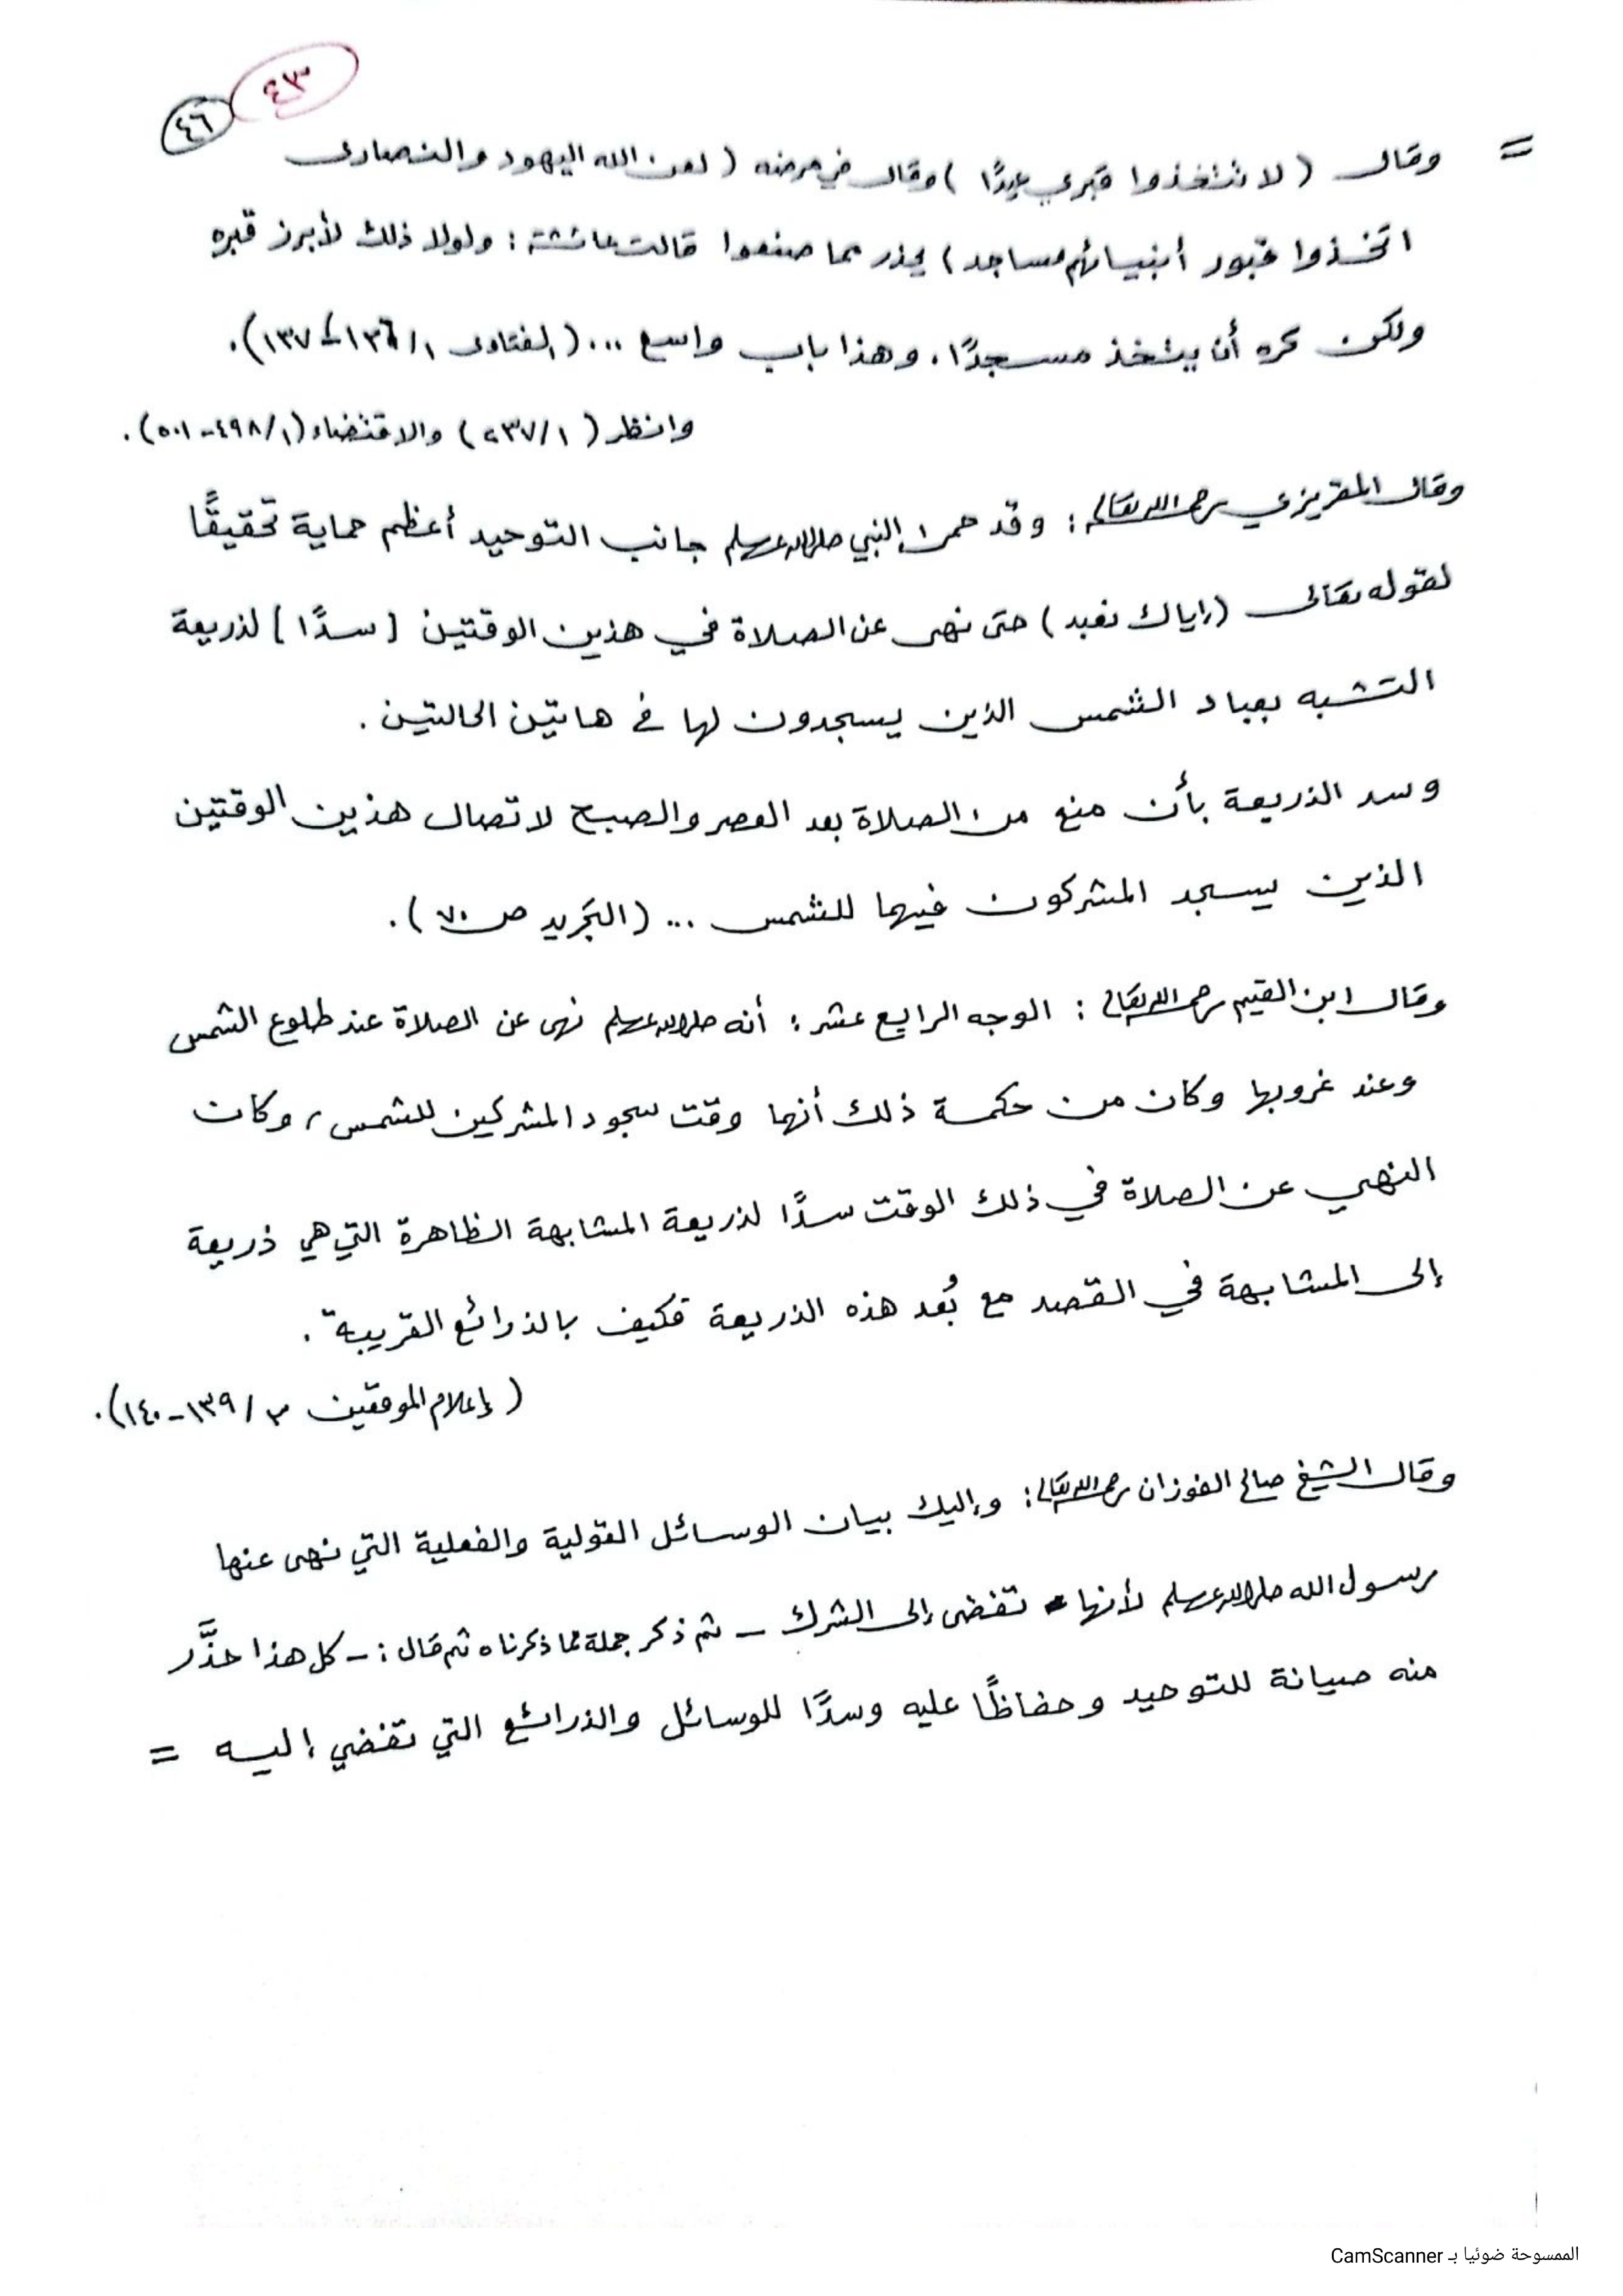 ٤٣
٤٦
= وقال ( لا تتخذوا قبري عيدًا ) وقال في مرضه ( لعن الله اليهود والنصارى
اتخذوا قبور أنبيائهم مساجد ) يحذر مما صنعوا قالت عائشة : ولولا ذلك لأبرز قبره
ولكن كره أن يتخذ مسجدًا . وهذا باب واسع ... ( الفتاوى ١٣٦/١ ١٣٧ ) .
وانظر ( ٢٣٧/١ ) والاقتضاء ( ٤٩٨/١ - ٥٠١ ) .
وقال المقريزي رحمه الله تعالى : وقد حمى النبي صلى الله عليه وسلم جانب التوحيد أعظم حماية تحقيقًا
لقوله تعالى ( إياك نعبد ) حتى نهى عن الصلاة في هذين الوقتين [ سدًا ] لذريعة
التشبه بعباد الشمس الذين يسجدون لها في هاتين الحالتين .
وسد الذريعة بأن منع من الصلاة بعد العصر والصبح لاتصال هذين الوقتين
الذين يسجد المشركون فيهما للشمس ... ( التجريد ص ٧٠ ) .
وقال ابن القيم رحمه الله تعالى : الوجه الرابع عشر : أنه صلى الله عليه وسلم نهى عن الصلاة عند طلوع الشمس
وعند غروبها وكان من حكمة ذلك أنهما وقت سجود المشركين للشمس ، وكان
النهي عن الصلاة في ذلك الوقت سدًا لذريعة المشابهة الظاهرة التي هي ذريعة
إلى المشابهة في القصد مع بُعد هذه الذريعة فكيف بالذرائع القريبة .
( إعلام الموقعين ٣ / ١٣٩ - ١٤٠ ) .
وقال الشيخ صالح الفوزان رحمه الله تعالى : وإليك بيان الوسائل القولية والفعلية التي نهى عنها
رسول الله صلى الله عليه وسلم لأنها تفضى إلى الشرك - ثم ذكر جملة مما ذكرناه ثم قال : - كل هذا حذَّر
منه صيانة للتوحيد وحفاظًا عليه وسدًا للوسائل والذرائع التي تفضي إليه =
الممسوحة ضوئيا بـ CamScanner